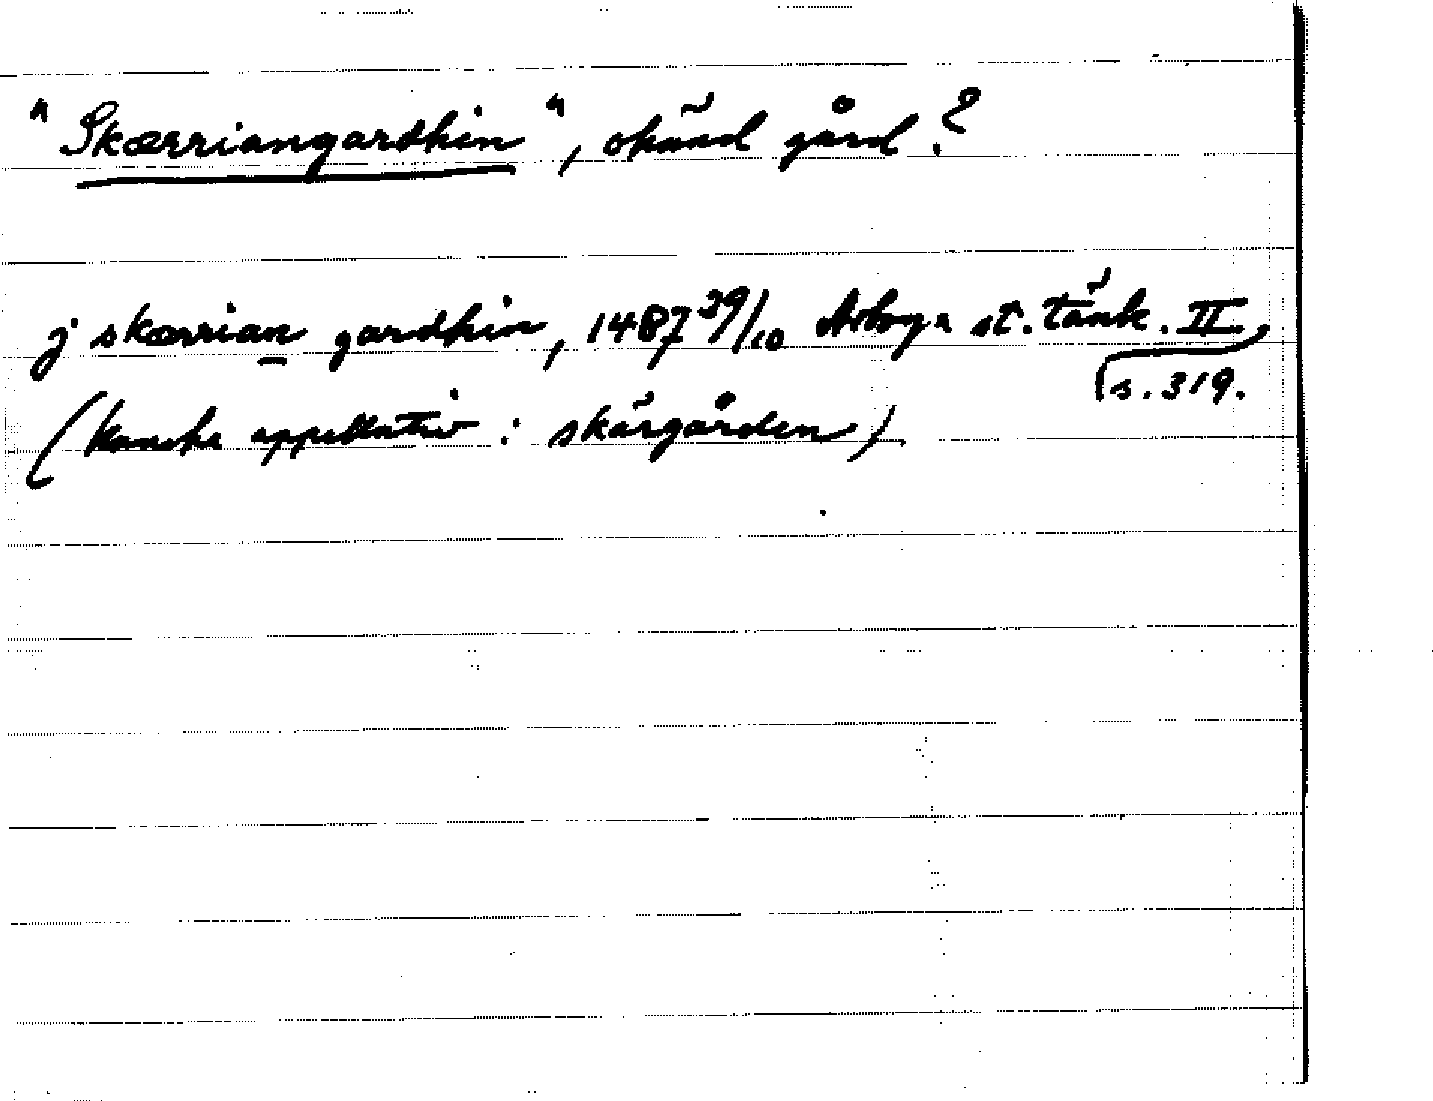 "Skærriangardhin", okänd gård?
j skærrian gardhin, 1487 29/10 Arboga st. tänk. II,
s. 319.
(kanske appellativ: skärgården).